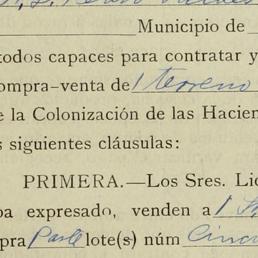 Municipio de
todos capaces para contratar y
compra-venta de 1 terreno
e la Colonización de las Hacien
s siguientes cláusulas:
PRIMERA.—Los Sres. Lic
ba expresado, venden a
pra Parte lote(s) núm Cinco